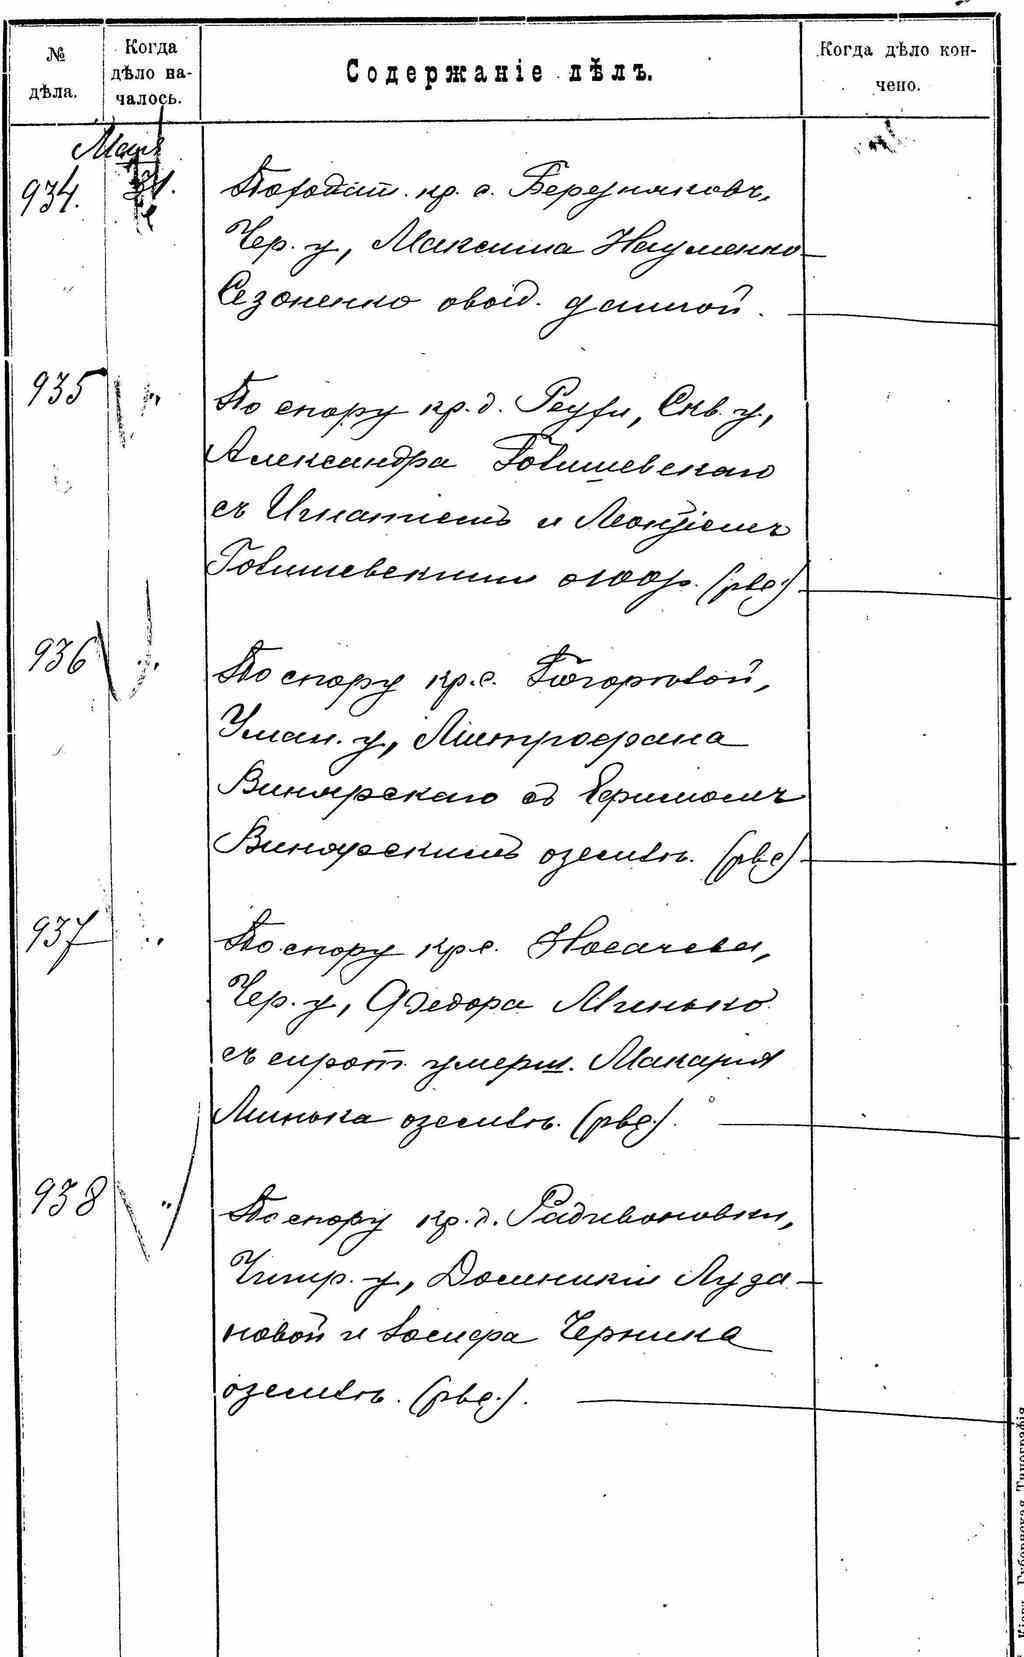 № дѣла.
Когда дѣло на-
чалось.
Содержаніе дѣлъ.
Когда дѣло кон-
чено.
934.
По ходат. кр. с. Березняковъ,
Чер. у, Максима Науменко-
Сезоненко о выд. данной.
935
По спору кр. д. Реухи, Скв. у,
Александра
съ Игнатіемъ и Леонтіемъ
(рвс.)
936
По спору кр. с.
Уман. у, Митрофана
Винярскаго съ Ефимомъ
Винярскимъ о землѣ. (рвс)
937
По спору кр. с. Носачева,
Чер. у, Федора Минько
съ сирот. умерш. Макарія
Минька о землѣ. (рвс.).
938 "
По спору кр. д. Радивоновки,
Чигир. у, Домникіи Луза-
новой и Іосифа Черника
о землѣ. (рвс.).
Кіевъ. Губернская Типографія